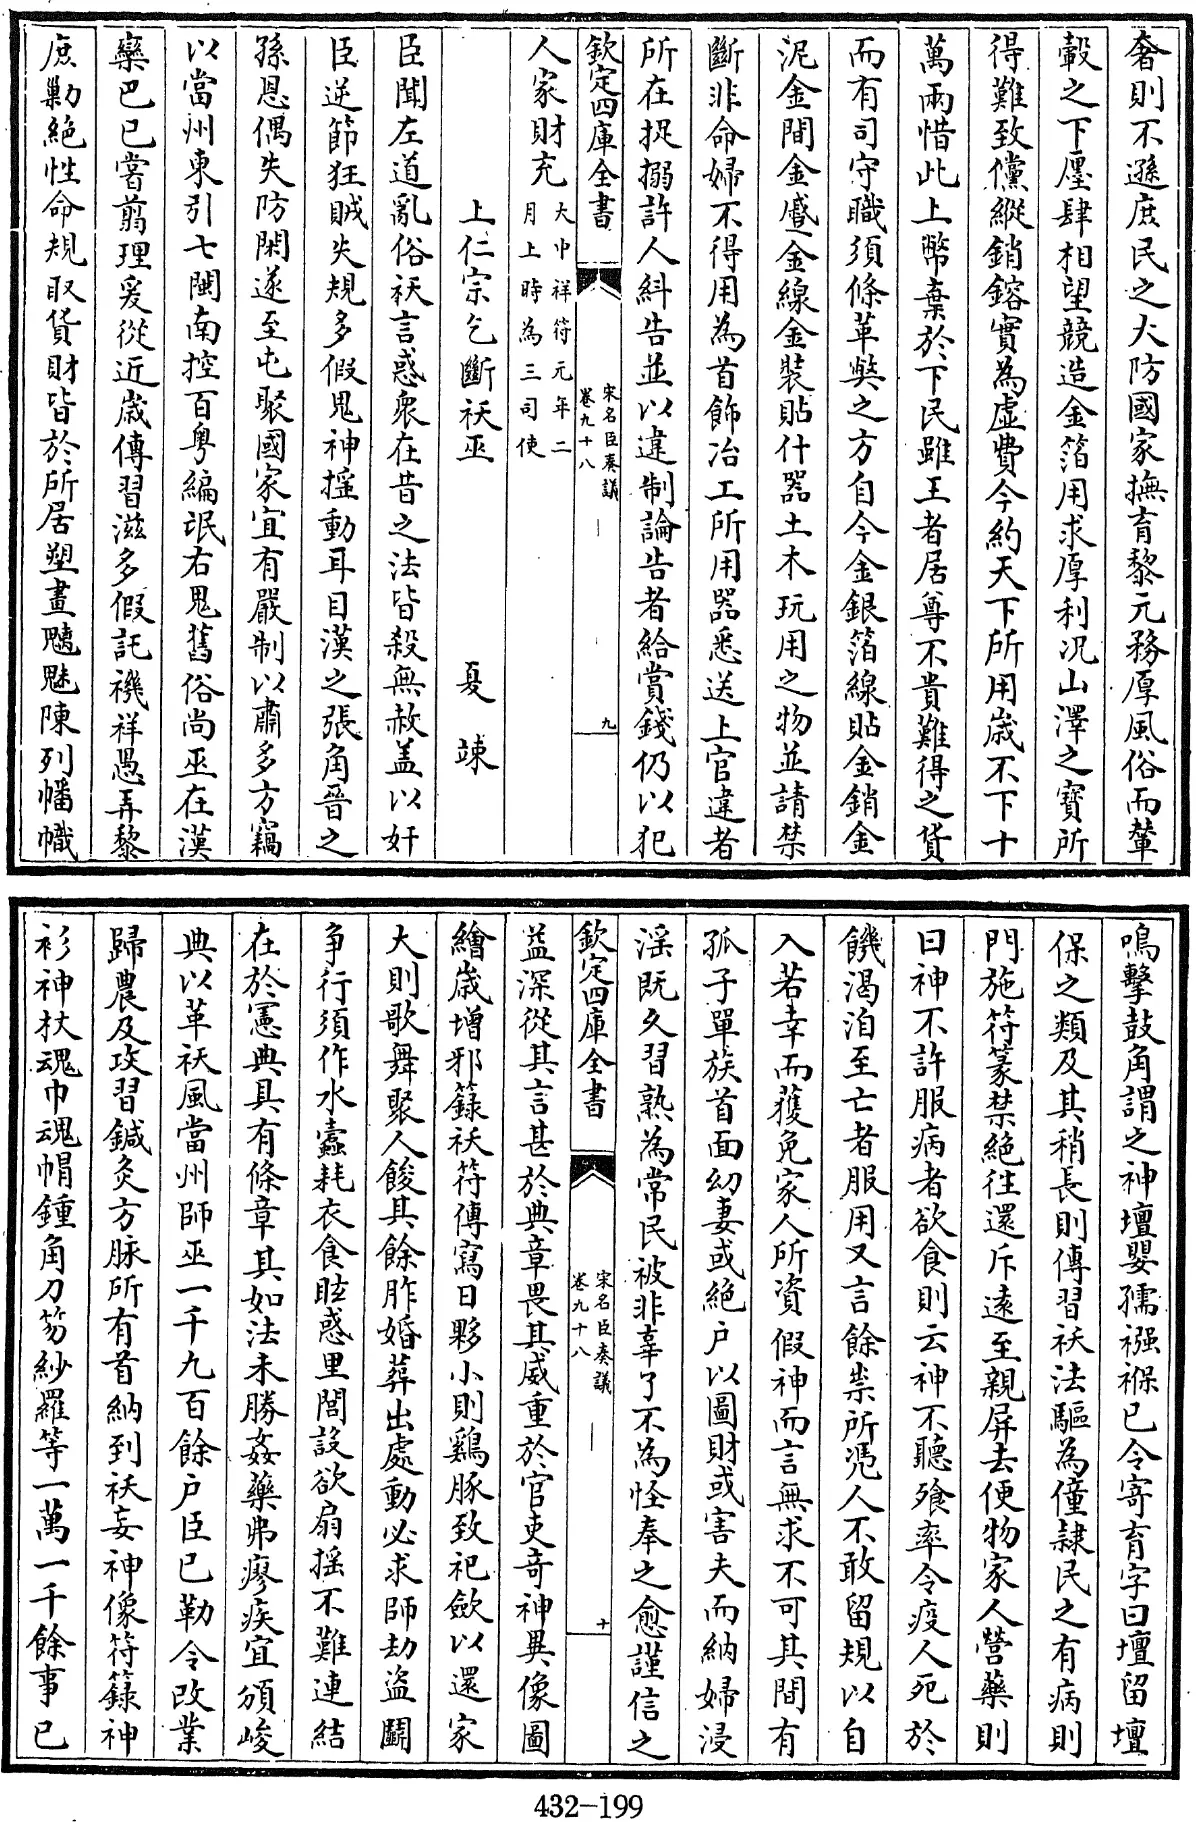 奢則不遜庶民之大防國家撫育黎元務厚風俗而輦
轂之下㕓肆相望競造金箔用求厚利況山澤之寶所
得難致儻縱銷鎔實為虛費今約天下所用歲不下十
萬兩惜此上幣棄於下民雖王者居尊不貴難得之貨
而有司守職須條革獘之方自今金銀箔線貼金銷金
泥金間金蹙金線金裝貼什器土木玩用之物並請禁
斷非命婦不得用為首飾冶工所用器悉送上官違者
所在捉搦許人糾告並以違制論告者給賞錢仍以犯
欽定四庫全書
宋名臣奏議
卷九十八
九
人家財充大中祥符元年二
月上時為三司使
上仁宗乞斷祅巫　　　　夏竦
臣聞左道亂俗祅言惑衆在昔之法皆殺無赦盖以奸
臣逆節狂賊失規多假鬼神揺動耳目漢之張角晉之
孫恩偶失防閑遂至屯聚國家宜有嚴制以肅多方竊
以當州東引七閩南控百粤編氓右鬼舊俗尚巫在漢
欒巴已嘗翦理爰從近歲傳習滋多假託禨祥愚弄黎
庶勦絶性命規取貨財皆於所居塑畫魑魅陳列幡幟
鳴擊鼓角謂之神壇嬰孺襁褓已令寄育字曰壇留壇
保之類及其稍長則傳習祅法驅為僮隷民之有病則
門施符篆禁絶往還斥遠至親屏去便物家人營藥則
曰神不許服病者欲食則云神不聽飱率令疫人死於
饑渴洎至亡者服用又言餘祟所凴人不敢留規以自
入若幸而獲免家人所資假神而言無求不可其間有
孤子單族首面幼妻或絶户以圖財或害夫而納婦浸
淫既久習熟為常民被非辜了不為怪奉之愈謹信之
欽定四庫全書
宋名臣奏議
卷九十八
十
益深從其言甚於典章畏其威重於官吏竒神異像圖
繪歲增邪籙祅符傳寫日夥小則鷄豚致祀斂以還家
大則歌舞聚人餕其餘胙婚葬出處動必求師劫盗鬬
争行須作水蠧耗衣食眩惑里閭設欲扇揺不難連結
在於憲典具有條章其如法未勝姦藥弗瘳疾宜頒峻
典以革祅風當州師巫一千九百餘户臣已勒令改業
歸農及攻習鍼灸方脉所有首納到祅妄神像符籙神
衫神杖魂巾魂帽鍾角刀笏紗羅等一萬一千餘事已
432-199